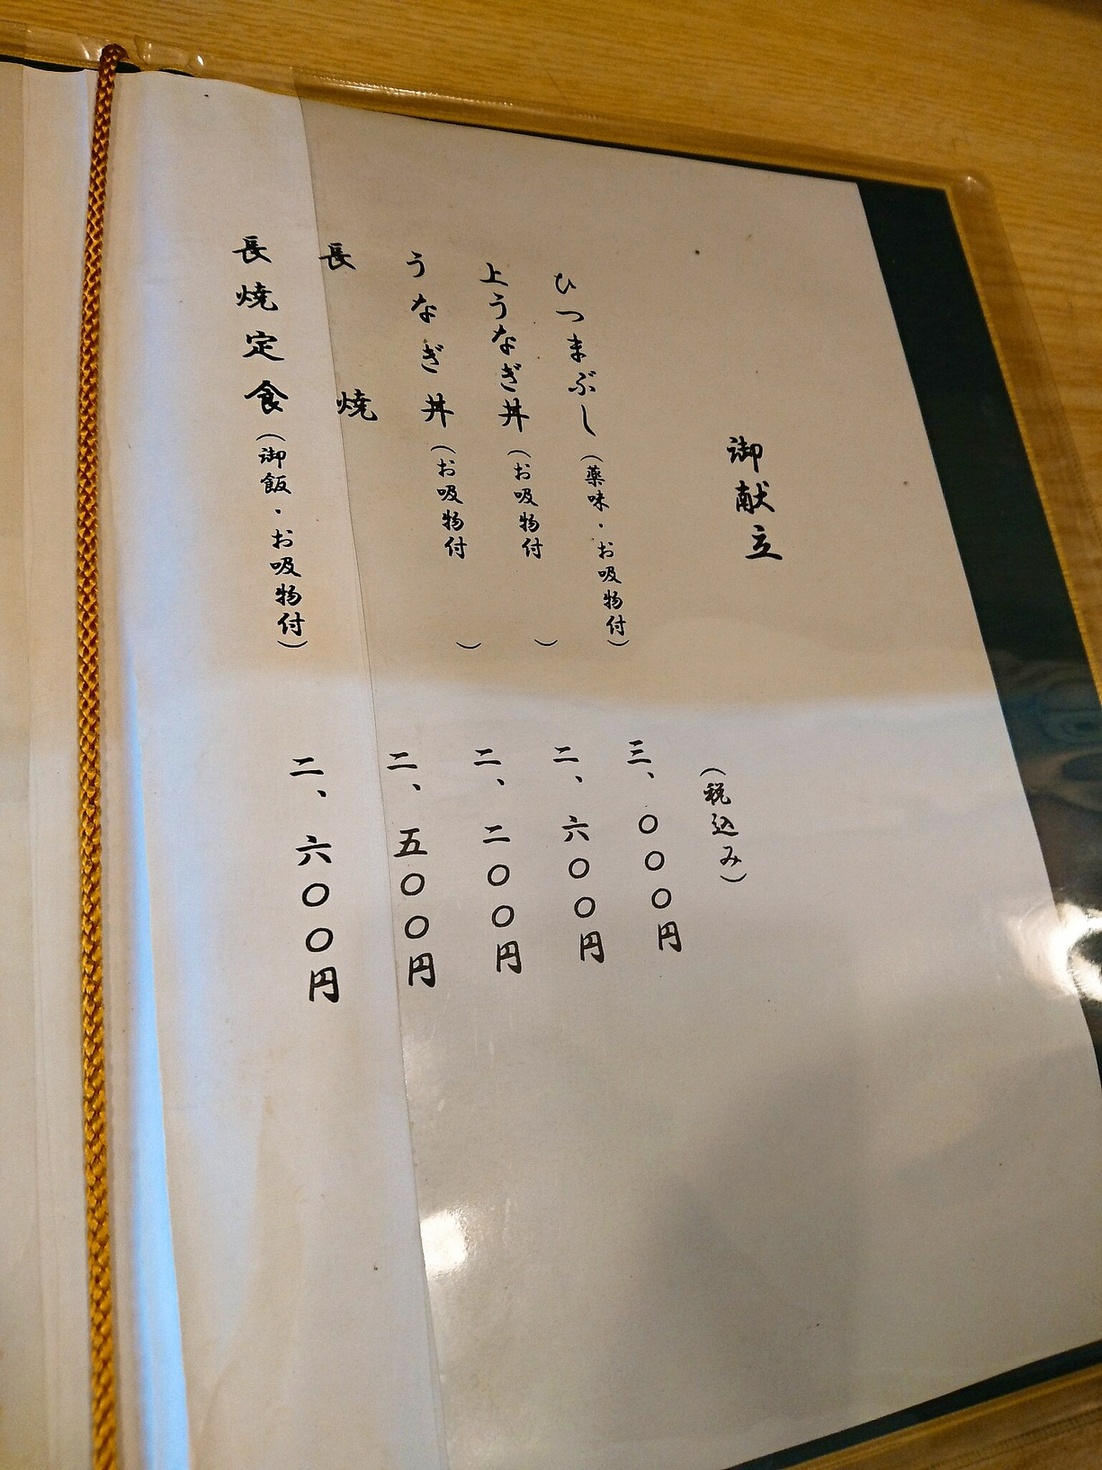 御献立
(税込み)
ひつまぶし(薬味・お吸物付) 三、〇〇〇円
上うなぎ丼(お吸物付) 二、六〇〇円
うなぎ丼(お吸物付) 二、二〇〇円
長焼 二、五〇〇円
長焼定食(御飯・お吸物付) 二、六〇〇円